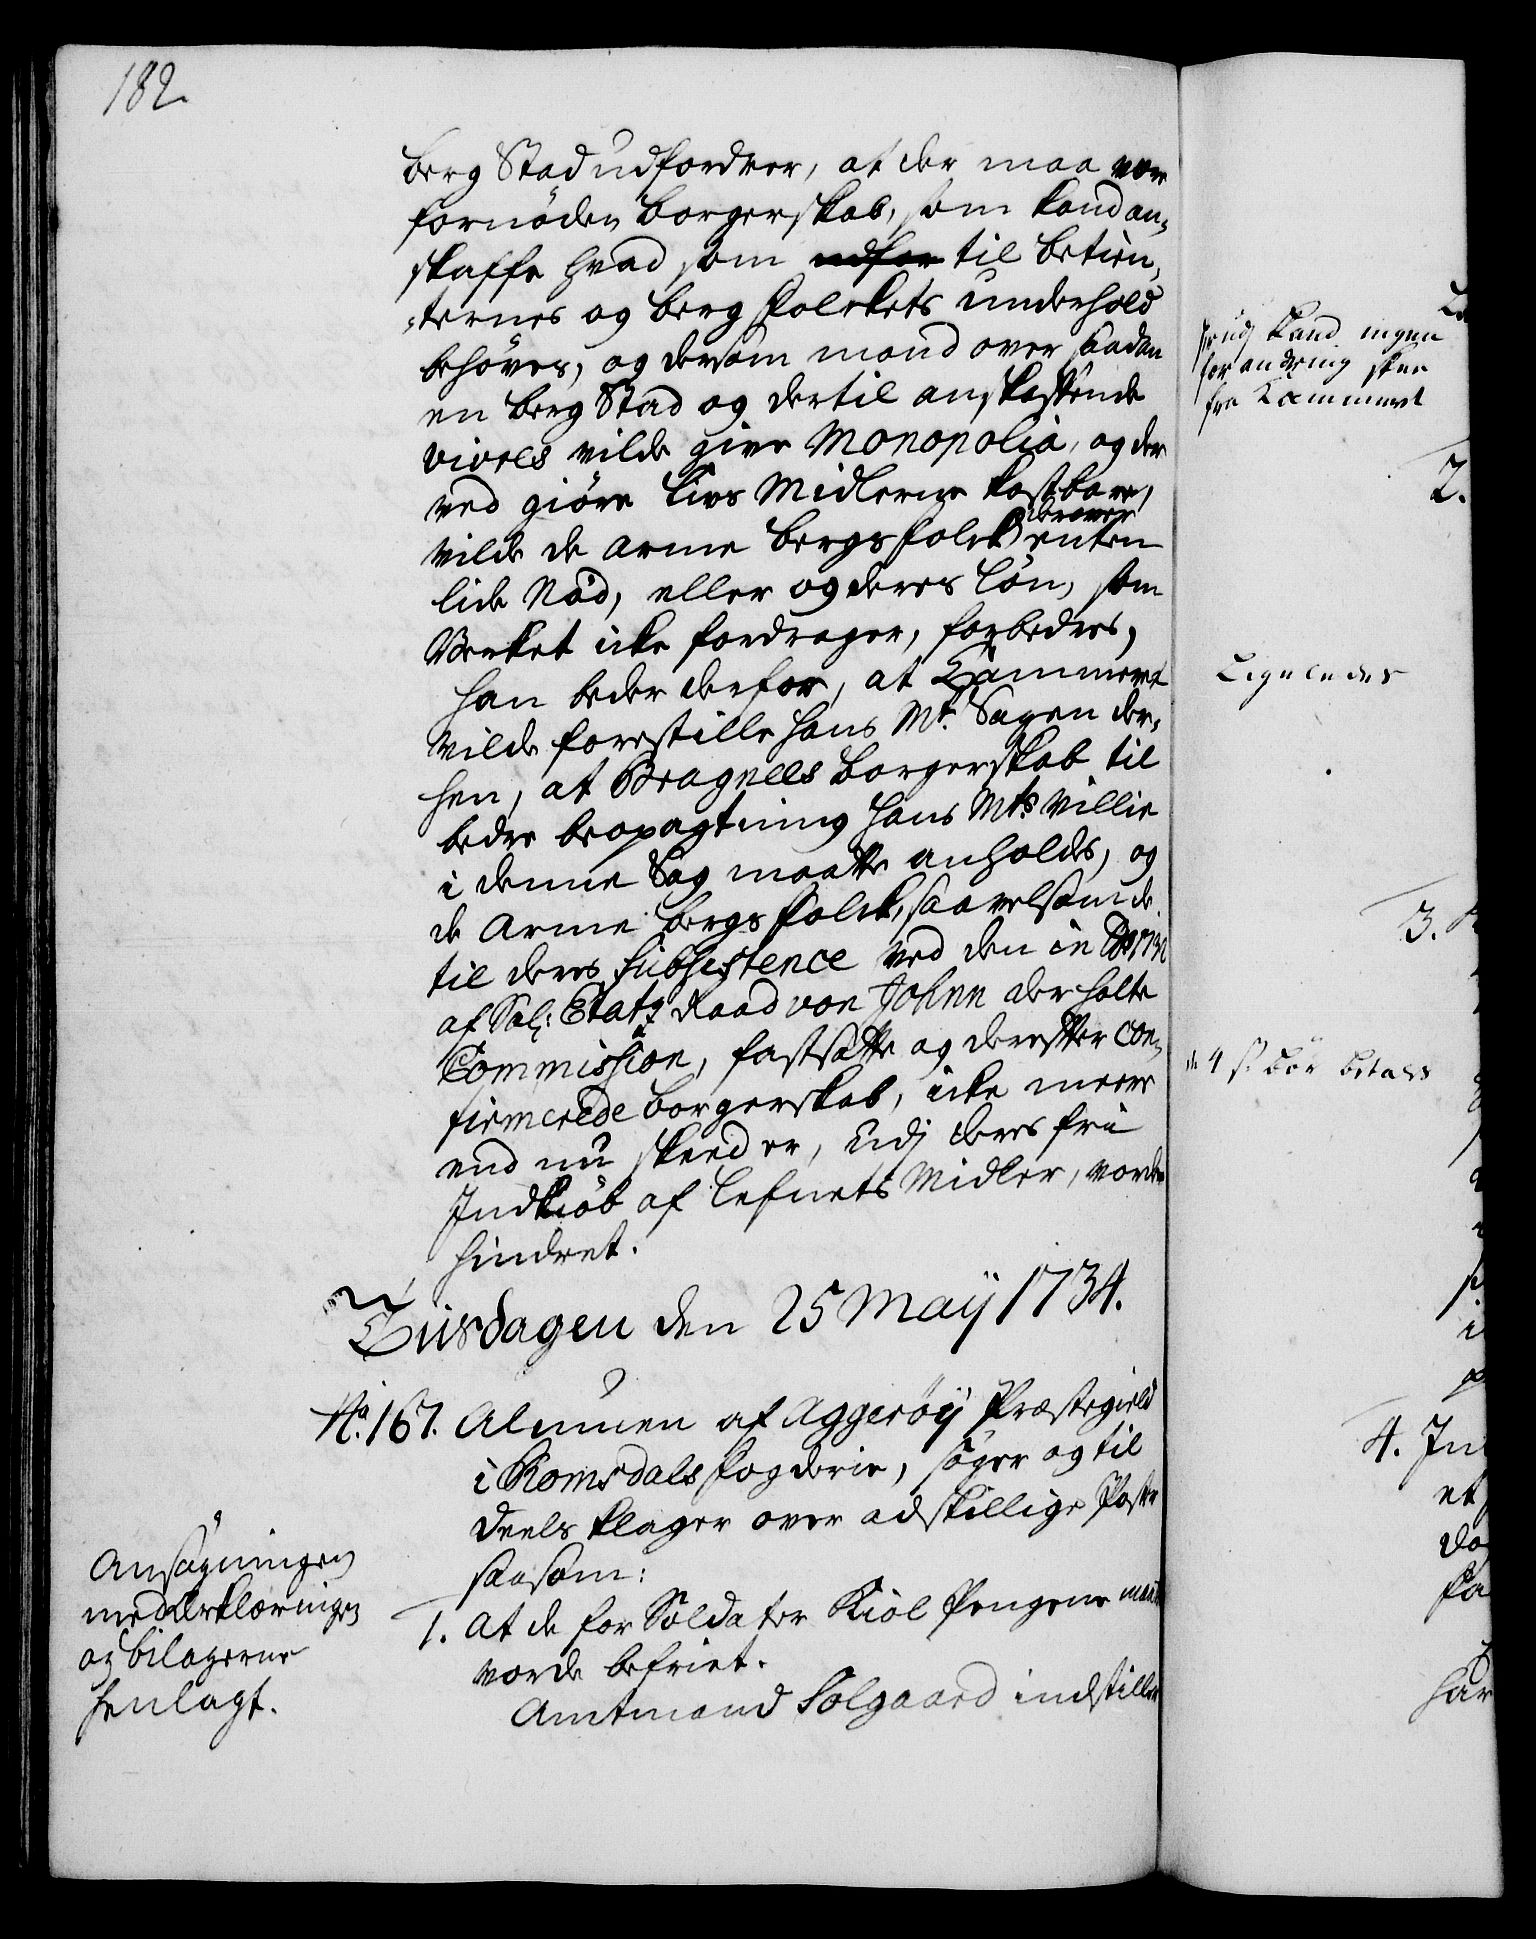 182.
berg Stad udfordrer, at der maa være
fornöden borgerskab, som kand an-
skaffe hvad som udfor til betien-
ternes og berg folckets underhold
behöves, og dersom mand over saadan
en berg Stad og dertil anskaffende
vivres vilde give Monopolia, og der
ved giöre Livs Midlerne kostbare,
vilde de arme bergsfolck derover enten
lide Nöd, eller og deres Lön, som
Verket icke fordrager, forbedres,
han beder derfor, at Cammeret
vilde forestille hans Mt. Sagen der-
hen, at Bragnæs borgerskab til
bedre beopagtning hans Mts. Villie
i denne Sag maatte anholdes, og
de arme bergsfolck, saavelsom de
til deres Subsistence ved den in
af Sal: Etatz Raad von Johnn der holte
Commission, fastsatte og derefter con-
firmerede borgerskab, icke meere
end nu skeed er, udj deres frie
Indkiöb af Lefnets Midler, vorder
hindret.
Tiisdagen den 25 Maij 1734.
No. 167. Almuen af Aggeröÿ Præstegield
i Romsdals fogderie, söger og til
deels klager over adskillige Poster
saasom:
1. At de for Soldater Kiol Pengene maatte
vorde befriet.
Amtmand Solgaard indstiller
Ansögningen
med Erklæringen
og bilagerne
henlagt.
herudj kand ingen
forandring skee
fra Kammeret
2.
Ligeledes
3.
4 s. bör betales
4. In
et